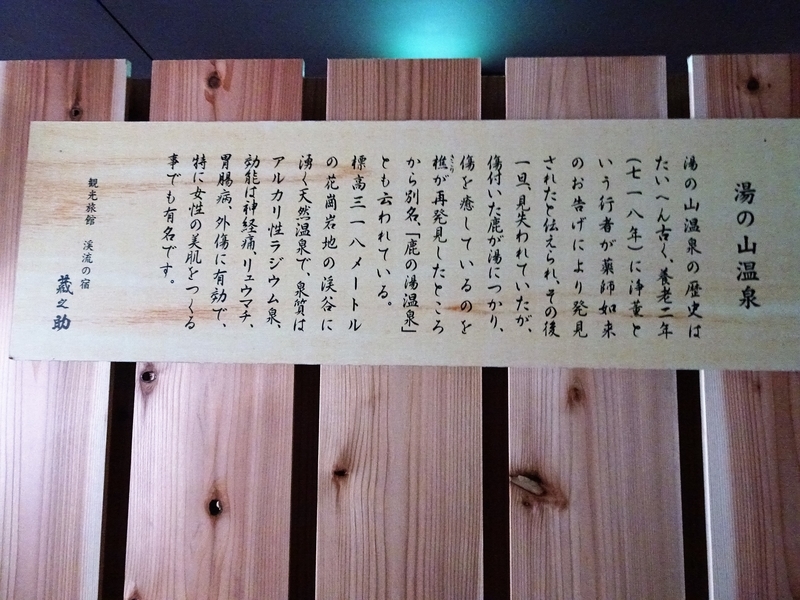 湯の山温泉
湯の山温泉の歴史は
たいへん古く、養老二年
(七一八年)に浄薫と
いう行者が薬師如来
のお告げにより発見
されたと伝えられ、その後
一旦、見失われていたが、
傷付いた鹿が湯につかり、
傷を癒しているのを
樵が再発見したところ
きこり
から別名、「鹿の湯温泉」
とも云われている。
標高三一八メートル
の花崗岩地の渓谷に
湧く天然温泉で、泉質は
アルカリ性ラジウム泉、
効能は神経痛、リュウマチ、
胃腸病、外傷に有効で、
特に女性の美肌をつくる
事でも有名です。
観光旅館 渓流の宿
蔵之助